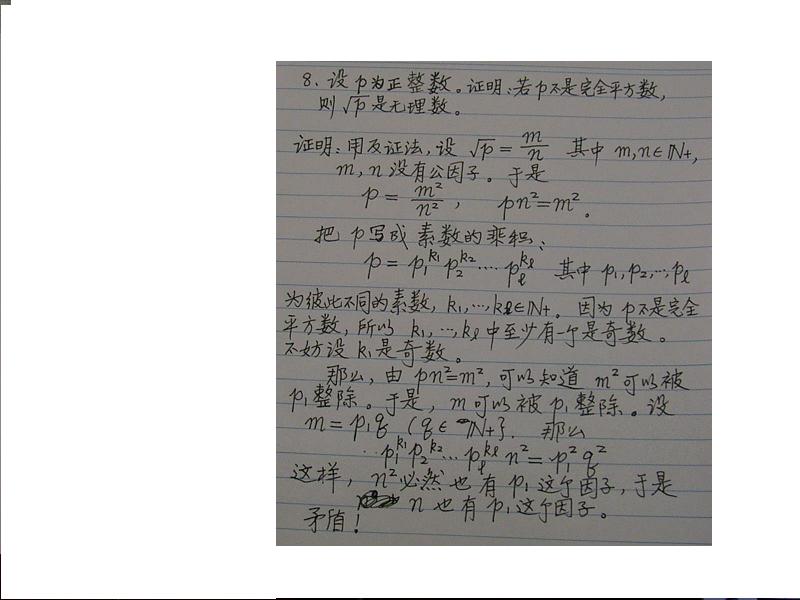 8. 设 p 为正整数。证明:若 p 不是完全平方数,
则 √p 是无理数。
证明:用反证法,设 √p = m/n 其中 m,n∈ℕ+,
m, n 没有公因子。于是
p = m²/n² , pn²=m²。
把 p 写成素数的乘积:
p = p₁^k₁ p₂^k₂ ···· p_ℓ^k_ℓ 其中 p₁,p₂,···,p_ℓ
为彼此不同的素数, k₁,···,k_ℓ∈ℕ+。因为 p 不是完全
平方数, 所以 k₁, ···, k_ℓ 中至少有一个是奇数。
不妨设 k₁ 是奇数。
那么, 由 pn²=m², 可以知道 m² 可以被
p₁ 整除。于是, m 可以被 p₁ 整除。设
m = p₁q (q∈ℕ+). 那么
p₁^k₁ p₂^k₂ ··· p_ℓ^k_ℓ n² = p₁² q²
这样, n² 必然也有 p₁ 这个因子, 于是
n 也有 p₁ 这个因子。
矛盾!